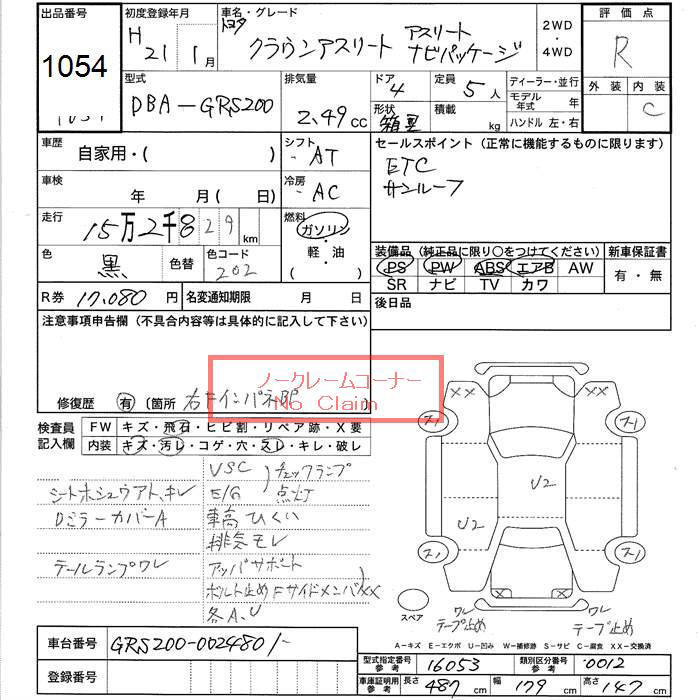 出品番号
1054
初度登録年月
H 21年 1月
車名・グレード
トヨタ クラウンアスリート アスリート ナビパッケージ
2WD・4WD
評価点
R
外装 内装
C
型式
DBA-GRS200
排気量
2.49cc
ドア 4
形状 箱型
定員 5人
積載 kg
ディーラー・並行
モデル年式 年
ハンドル 左・右
車歴
自家用・( )
シフト
・AT
セールスポイント (正常に機能するものに限ります)
ETC
サンルーフ
車検
年 月( 日)
冷房
・AC
走行
15万2千829km
燃料
ガソリン・軽・油
( )
色
黒
色替
色コード
202
装備品 (純正品に限り○をつけてください)
PS PW ABS エアB AW
SR ナビ TV カワ
新車保証書
有・無
R券 17,080円
名変通知期限 月 日
後日品
注意事項申告欄 (不具合内容等は具体的に記入して下さい)
ノークレームコーナー
No Claim
修復歴 有 〔箇所
検査員記入欄
FW キズ・飛石・ヒビ割・リペア跡・X要
内装 キズ・汚レ・コゲ・穴・スレ・キレ・破レ
VSC
E/G
チェックランプ点灯
シートホシュウアト、キレ
DミラーカバーA
車高ひくい
排気モレ
テールランプワレ
アッパサポート
ボルト止め FサイドメンバXX
各A、U
XX XX
ス1 ス1
U2
U2
ス1 ス1
XX XX
スペア
ワレ テープ止め
ワレ テープ止め
A-キズ E-エクボ U-凹み W-補修跡 S-サビ C-腐食 XX-交換済
車台番号
GRS200-0024801-
登録番号
型式指定番号 参考
16053
類別区分番号 参考
0012
車庫証明用 参考
長さ 487cm
幅 179cm
高さ 147cm